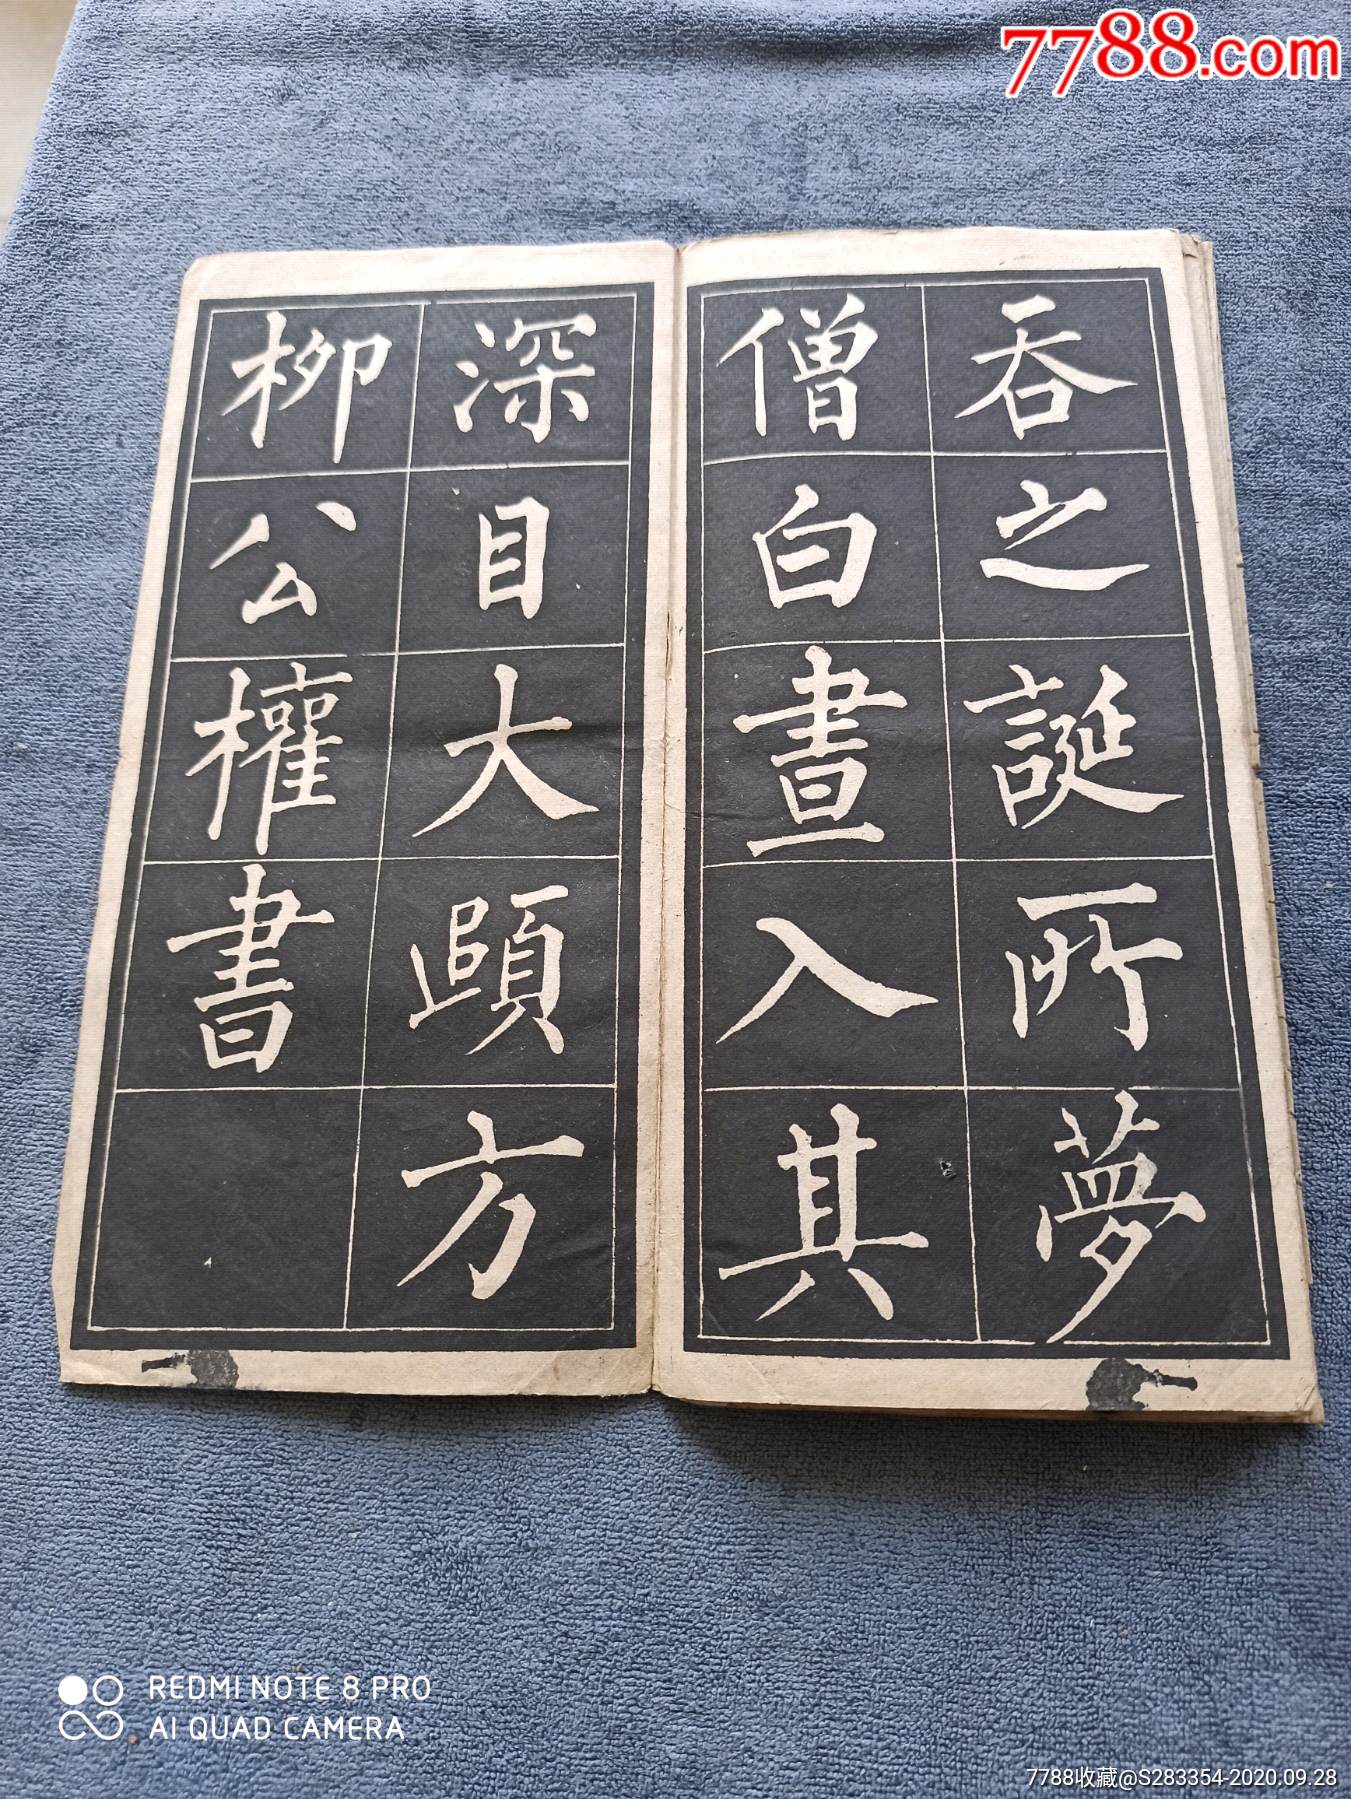 7788.com
吞之誕所夢
僧白晝入其
深目大頤方
柳公權書
REDMI NOTE 8 PRO
AI QUAD CAMERA
7788收藏@S283354-2020.09.28